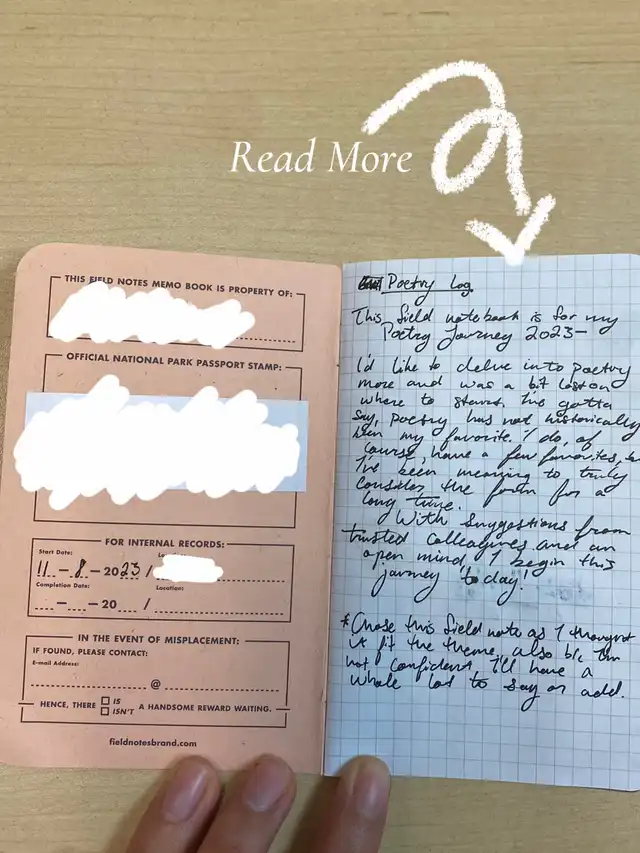 Read More
THIS FIELD NOTES MEMO BOOK IS PROPERTY OF:
OFFICIAL NATIONAL PARK PASSPORT STAMP:
FOR INTERNAL RECORDS:
Start Date:
11 - 8 - 2023 /
Completion Date:
Location:
— 20 /
IN THE EVENT OF MISPLACEMENT:
IF FOUND, PLEASE CONTACT:
E-mail Address:
@
HENCE, THERE IS
ISN'T A HANDSOME REWARD WAITING.
fieldnotesbrand.com
Poetry Log
This field notebook is for my
Poetry Journey 2023-
I'd like to delve into poetry
more and was a bit lost on
where to I've gotta
say, poetry has not historically
been my favorite. I do, of
course, have a few favorites,
I've been meaning to truly
consider the form for a
long time.
With suggestions from
trusted colleagues and an
open mind, I begin this
journey today!
*Chose this field note as I thought
it fit the theme, also b/c I'm
not confident I'll have a
whole lot to say or add.